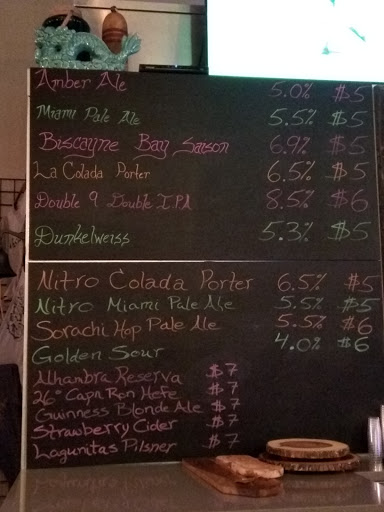 Amber Ale 5.0% $5
Miami Pale Ale 5.5% $5
Biscayne Bay Saison 6.9% $5
La Colada Porter 6.5% $5
Double 9 Double I.P.A 8.5% $6
Dunkelweiss 5.3% $5
Nitro Colada Porter 6.5% $5
Nitro Miami Pale Ale 5.5% $5
Sorachi Hop Pale Ale 5.5% $6
Golden Sour 4.0% $6
Alhambra Reserva $7
26° Capn Ron Hefe $7
Guinness Blonde Ale $7
Strawberry Cider $7
Lagunitas Pilsner $7